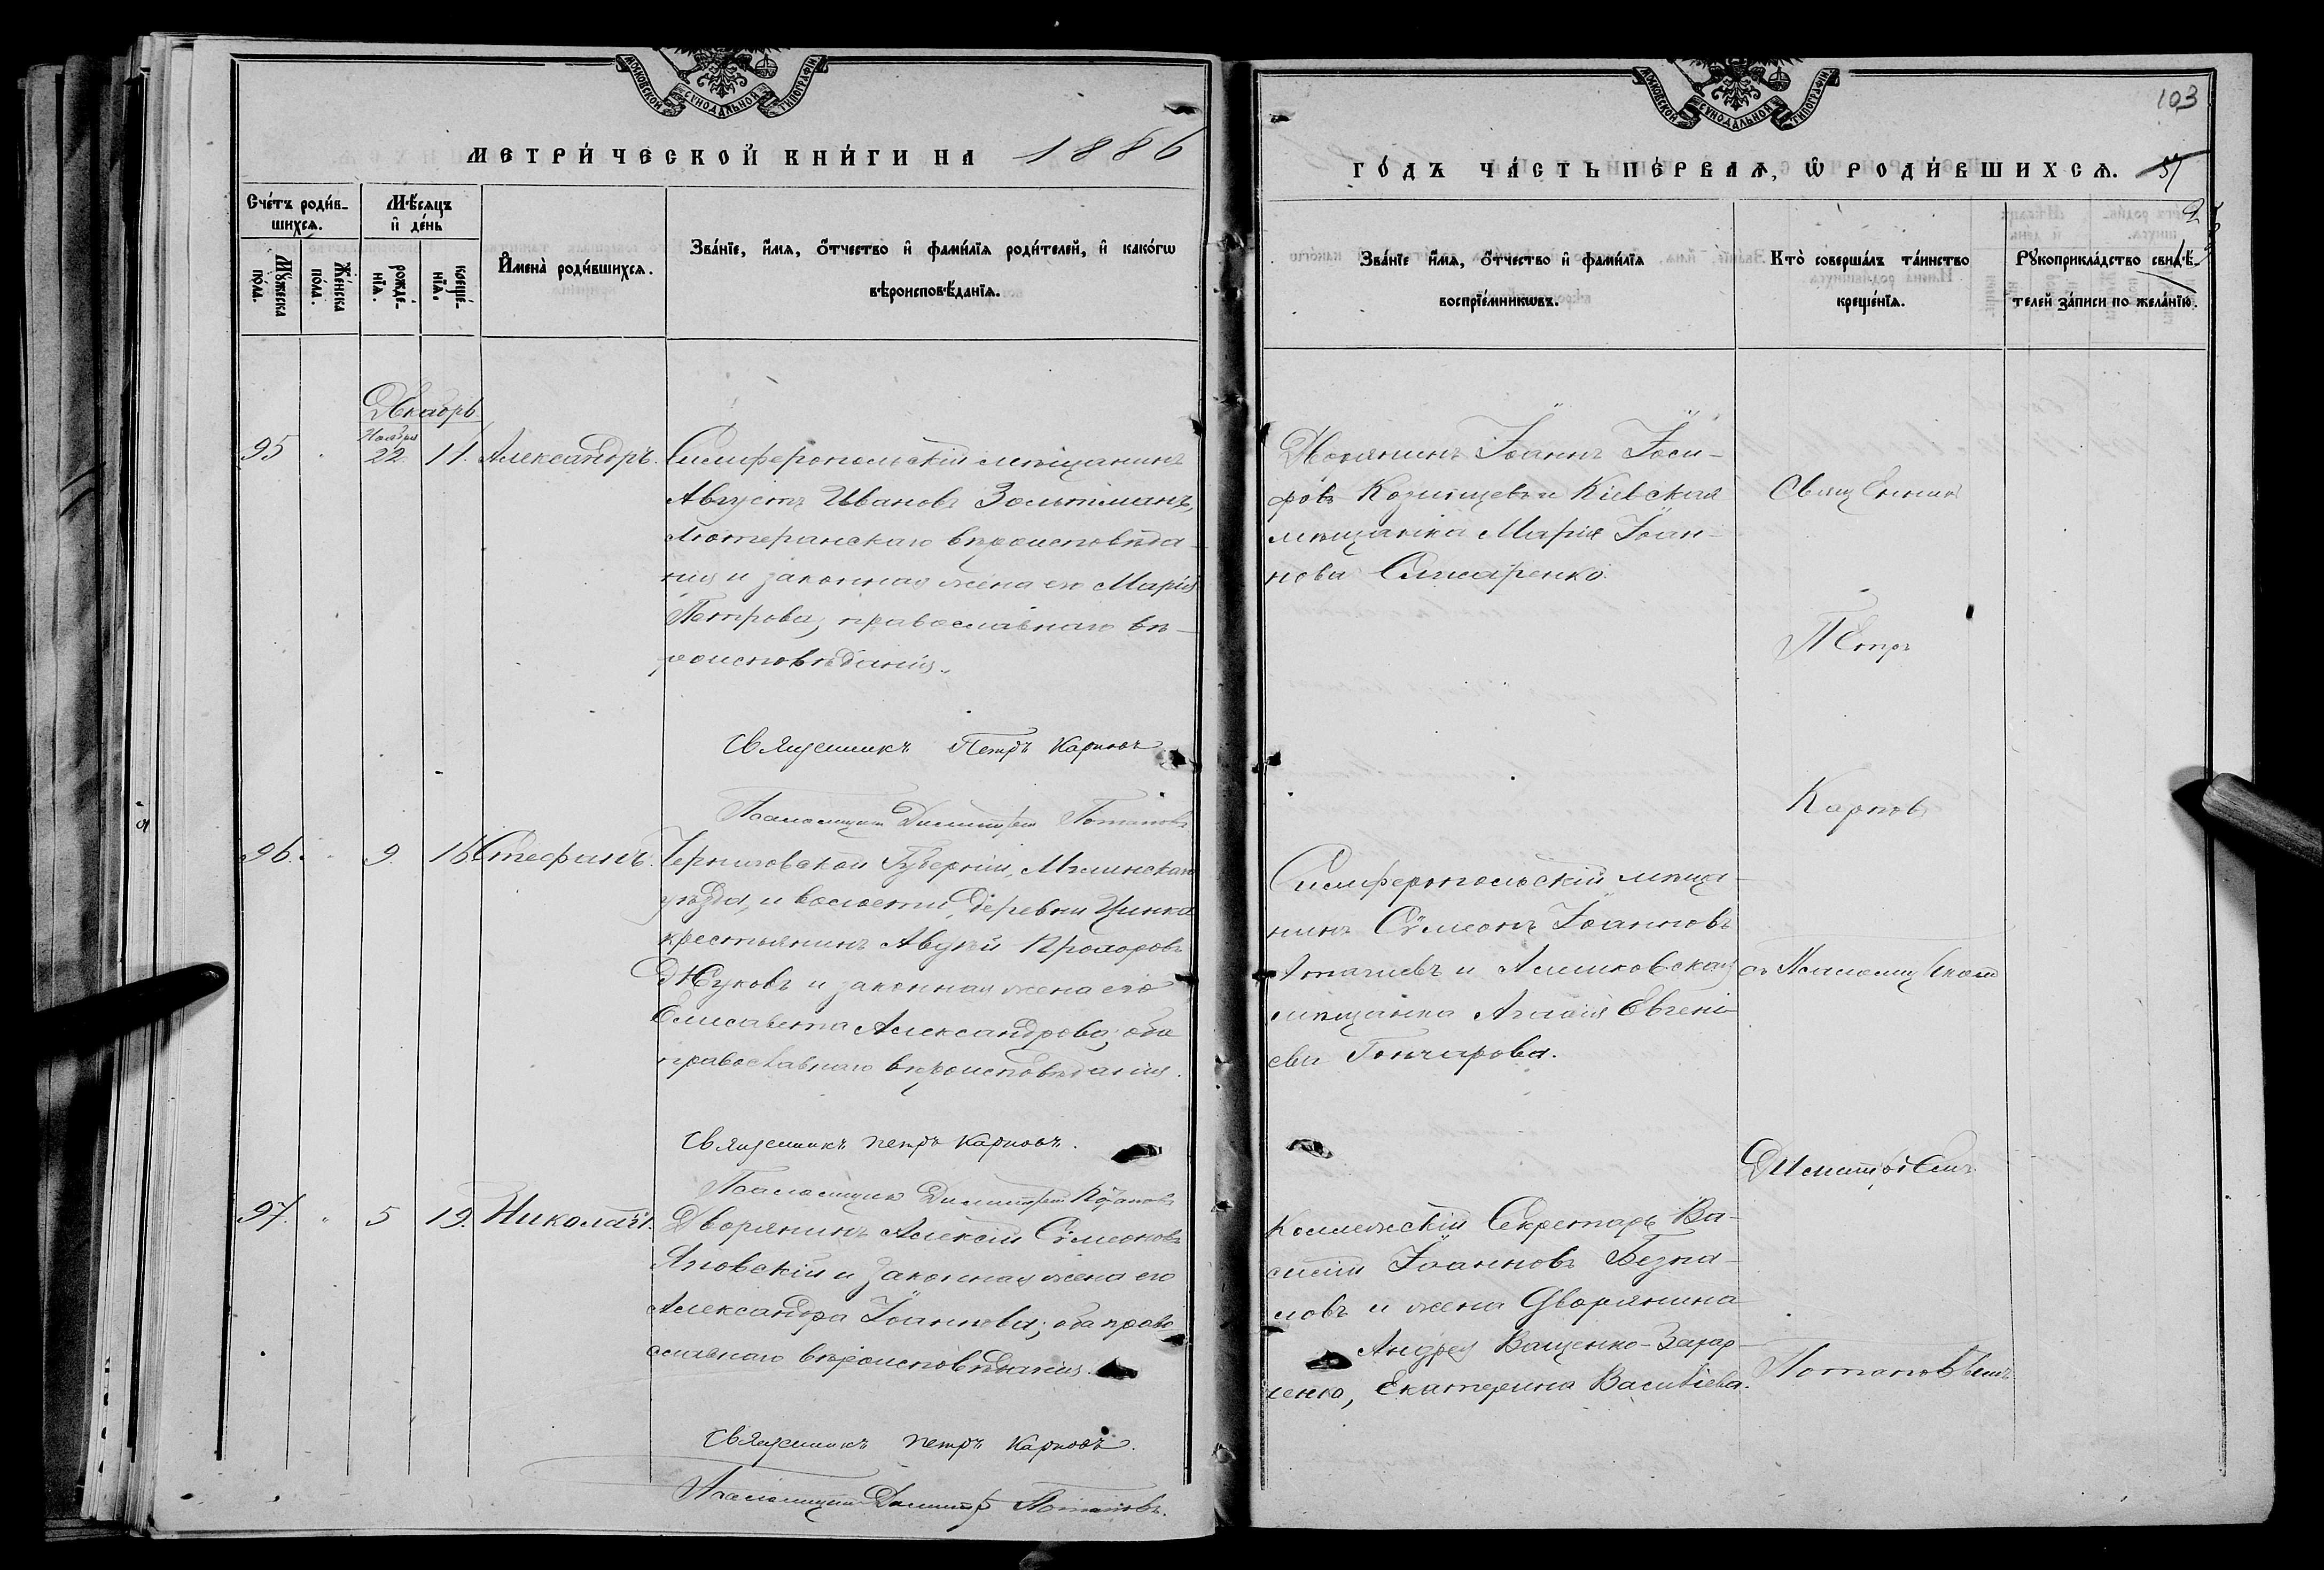 МОСКОВСКОЙ СѴНОДАЛЬНОЙ ТИПОГРАФІИ
МЕТРИ́ЧЕСКОЙ КНИ́ГИ НА 1886
Сче́тъ роди́в-
шихсѧ.
Мѣ́сѧцъ
и҆ де́нь
Мꙋ́жеска
по́ла.
Же́нска
по́ла.
рожде́-
нїѧ.
креще́-
нїѧ.
И҆мена̀ роди́вшихсѧ.
Зва́нїе, и҆́мѧ, ѻ҆́тчество и҆ фами́лїѧ роди́телей, и҆ како́гѡ
вѣроисповѣ́данїѧ.
Декабрь
95 Ноября 22 11. Александръ.
Симферопольскій мѣщанинъ
Августъ Ивановъ Зольтманъ,
лютеранскаго вѣроисповѣда-
нія и законная жена его Марія
Петрова, православнаго вѣ-
роисповѣданія.
Священникъ Петръ Карповъ
Псаломщикъ Димитрій Потаповъ
96. 9. 16 Стефанъ.
Черниговской Губерніи, Мглинскаго
уѣзда, и волости, деревни Цинка
крестьянинъ Авдѣй Прохоровъ
Жуковъ и законная жена его
Елисавета Александрова; оба
православнаго вѣроисповѣданія.
Священникъ Петръ Карповъ.
Псаломщикъ Димитрій Потаповъ
97. 5 19. Николай.
Дворянинъ Алексій Сѵмеоновъ
Яновскій и законная жена его
Александра Іоаннова; оба право
славнаго вѣроисповѣданія.
Священникъ Петръ Карповъ.
Псаломщикъ Димитрій Потаповъ.
МОСКОВСКОЙ СѴНОДАЛЬНОЙ ТИПОГРАФІИ
103
ГО́ДЪ ЧА́СТЬ ПЕ́РВАѦ, Ѽ РОДИ́ВШИХСѦ. 51
Зва́нїе и҆́мѧ, ѻ҆́тчество и҆ фами́лїѧ
воспрїе́мникѡвъ.
Кто̀ соверша́лъ та́инство
креще́нїѧ.
Рꙋкоприкла́дство свидѣ́-
телей за́писи по жела́нїю.
Дворянинъ Іоаннъ Іоси-
фовъ и Кіевская
мѣщанка Марія Іоан-
нова
Священникъ
Петръ
Карповъ
Симферопольскій мѣща-
нинъ Сѵмеонъ Іоанновъ
и Алешковская
мѣщанка Агаѳія Евгені-
ева Гончарова.
съ Псаломщикомъ
Димитріемъ
Потаповымъ
Коллежскій Секретарь Ва-
силій Іоанновъ
и жена Дворянина
Андрея Ващенко-Захар-
ченко, Екатерина Василіева.